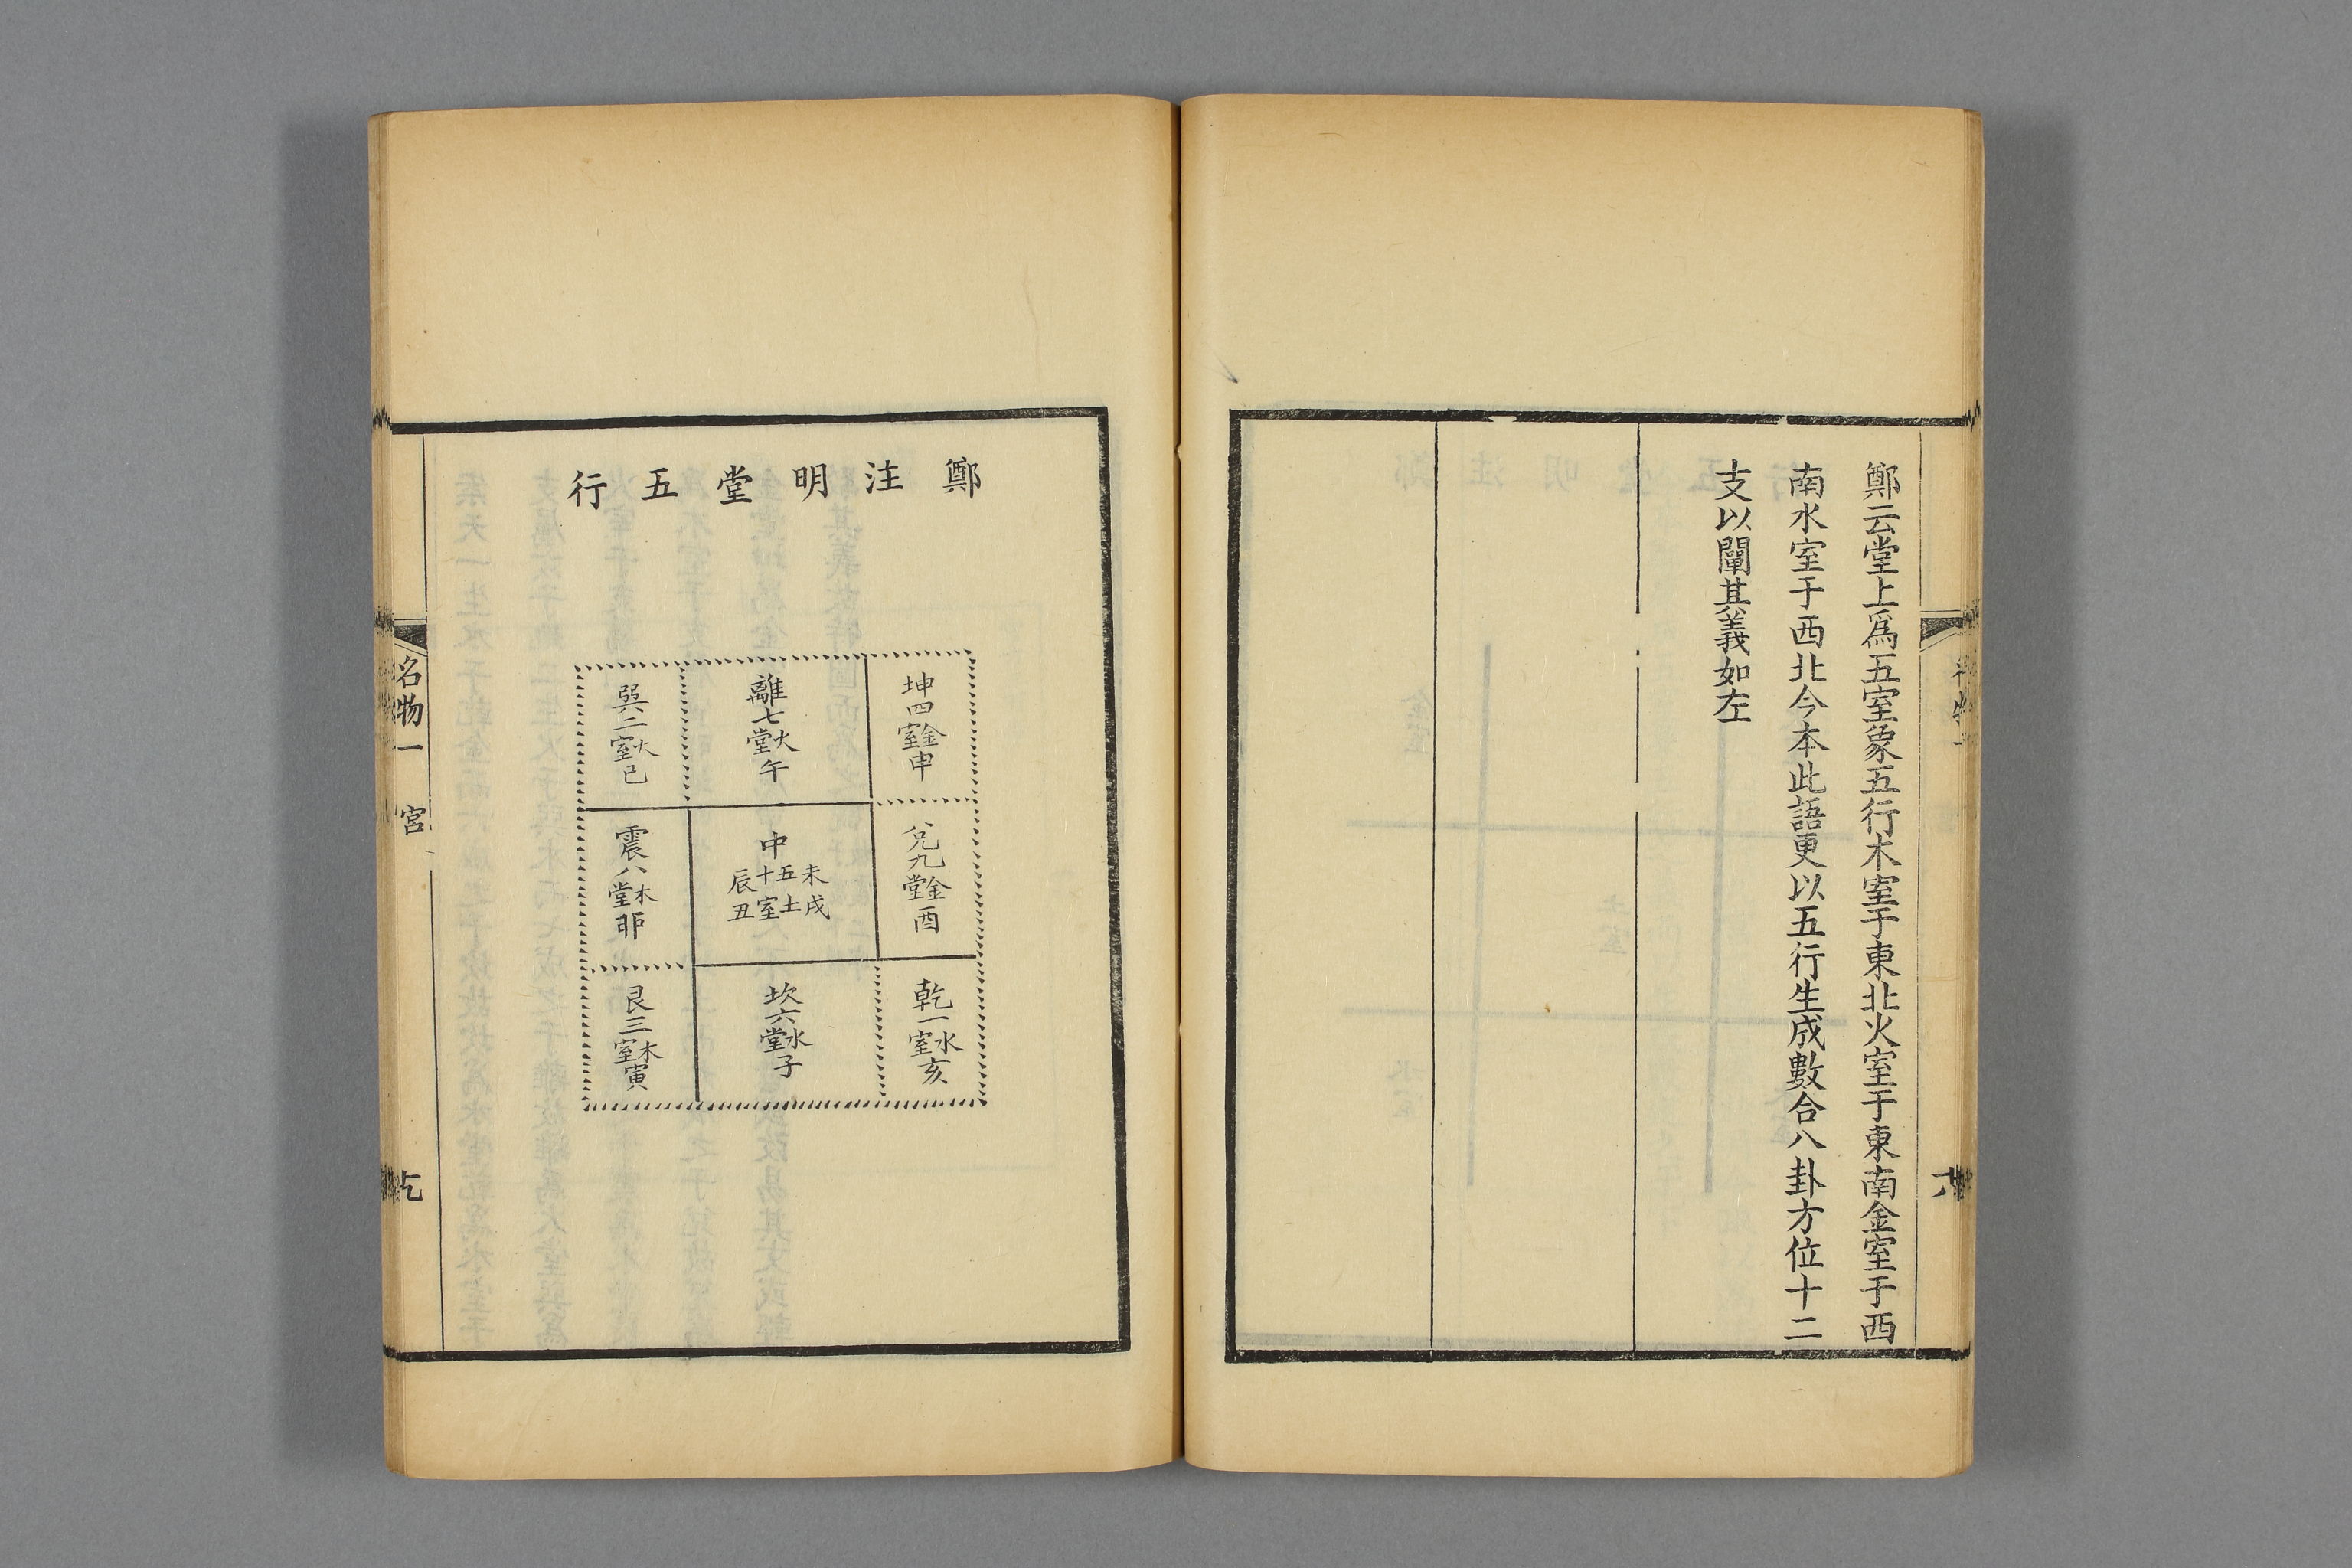 鄭云堂上爲五室象五行木室于東北火室于東南金室于西
南水室于西北今本此語更以五行生成數合八卦方位十二
支以闡其義如左
鄭注明堂五行
坤四金室申
離七火堂午
巽二火室巳
兌九金堂酉
中五十土室未戌辰丑
震八木堂卯
乾一水室亥
坎六水堂子
艮三木室寅
名物一 宮